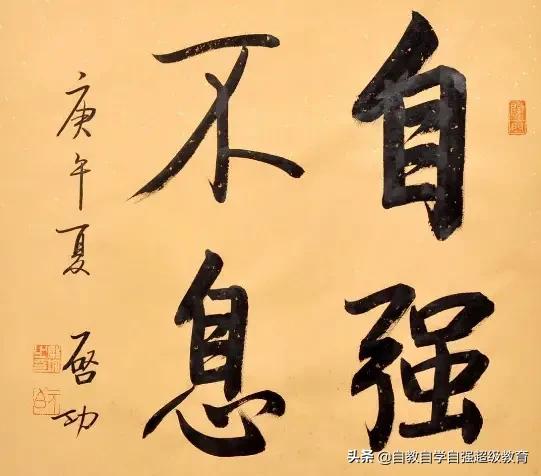 自强
不息
庚午夏 启功
头条 @自教自学自强超级教育